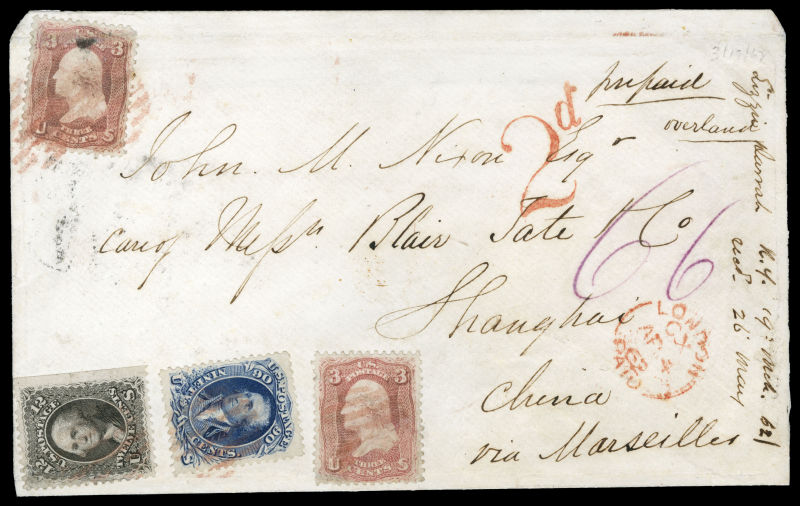 3
U 3 S
THREE
CENTS
3/19/62
prepaid
overland
2d
John. M. Nixon Esqr
care of Messrs Blair Tate & Co
Shanghai
China
via Marseilles
66
LONDON
CX
AP 4
62
PAID
Lizzie Darrah N.Y. 19th Mch. 62
recd 26 May
12
U.S. POSTAGE
TWELVE CENTS
U S
90
U.S. POSTAGE
NINETY
CENTS.
3
U.S.
POSTAGE
3
U S
THREE
CENTS